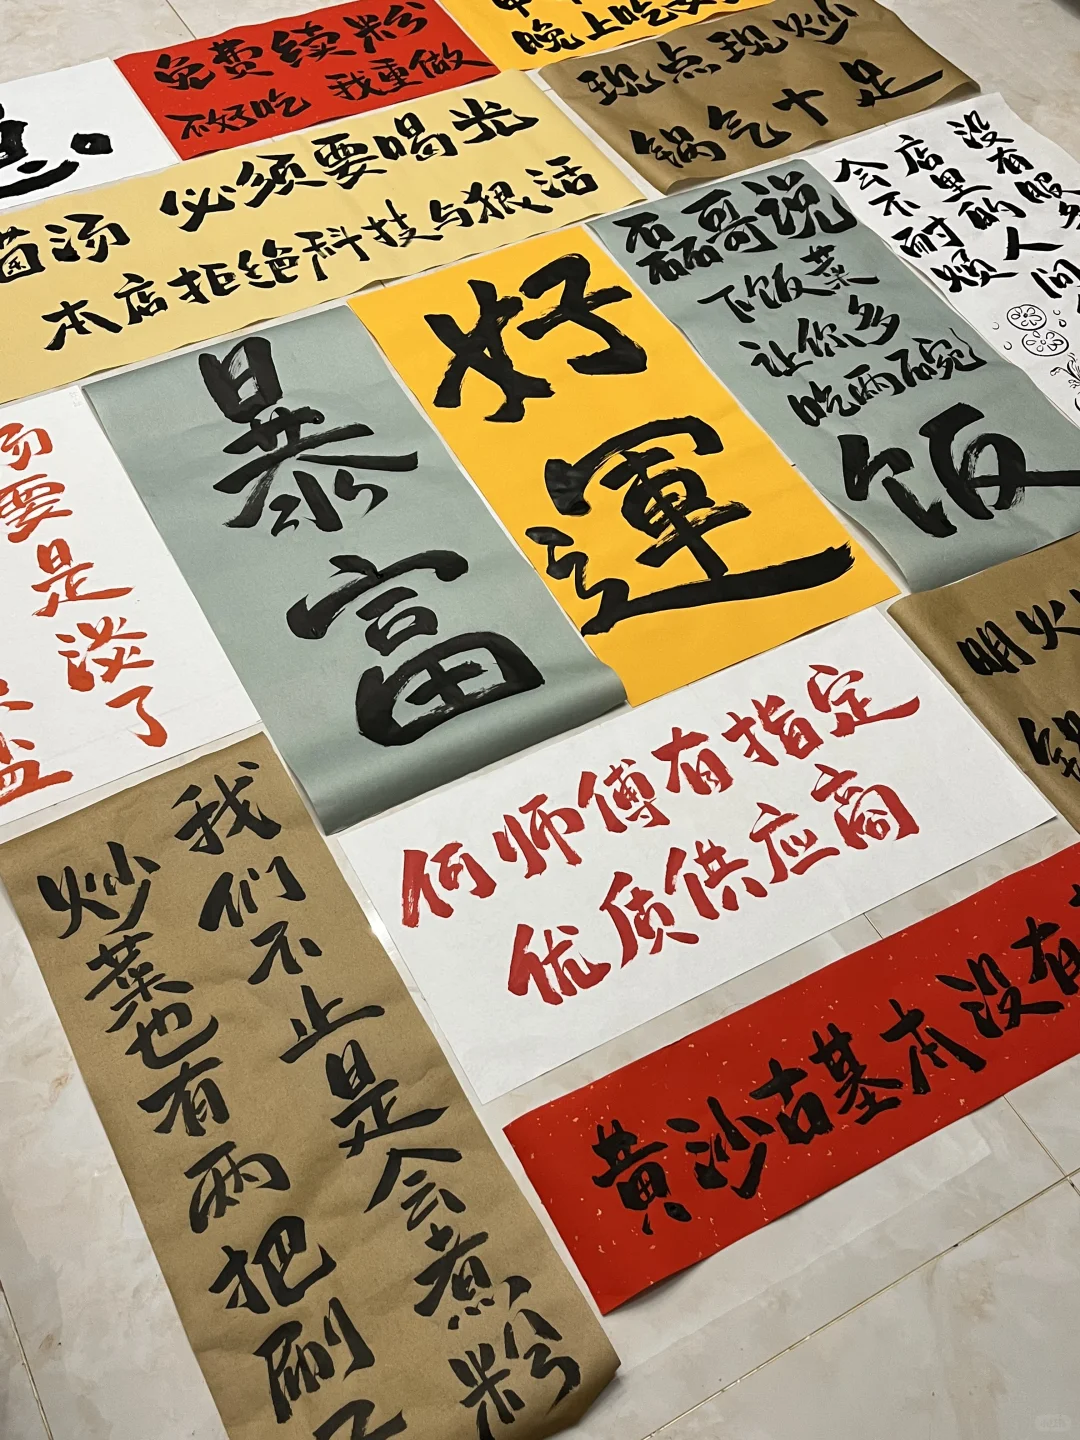 免费续粉
不好吃 我更做
晚上吃
现点现炒
锅气十足
菌汤 必须要喝光
本店拒绝科技与狠活
好運
磊哥说
下饭菜
让你多
吃两碗
饭
没有服
店里的人
会不耐烦
暴富
要是淡了
何师傅有指定
优质供应商
明火
锅
黄沙古基本没有
我们不止是会煮粉
炒菜也有两把刷